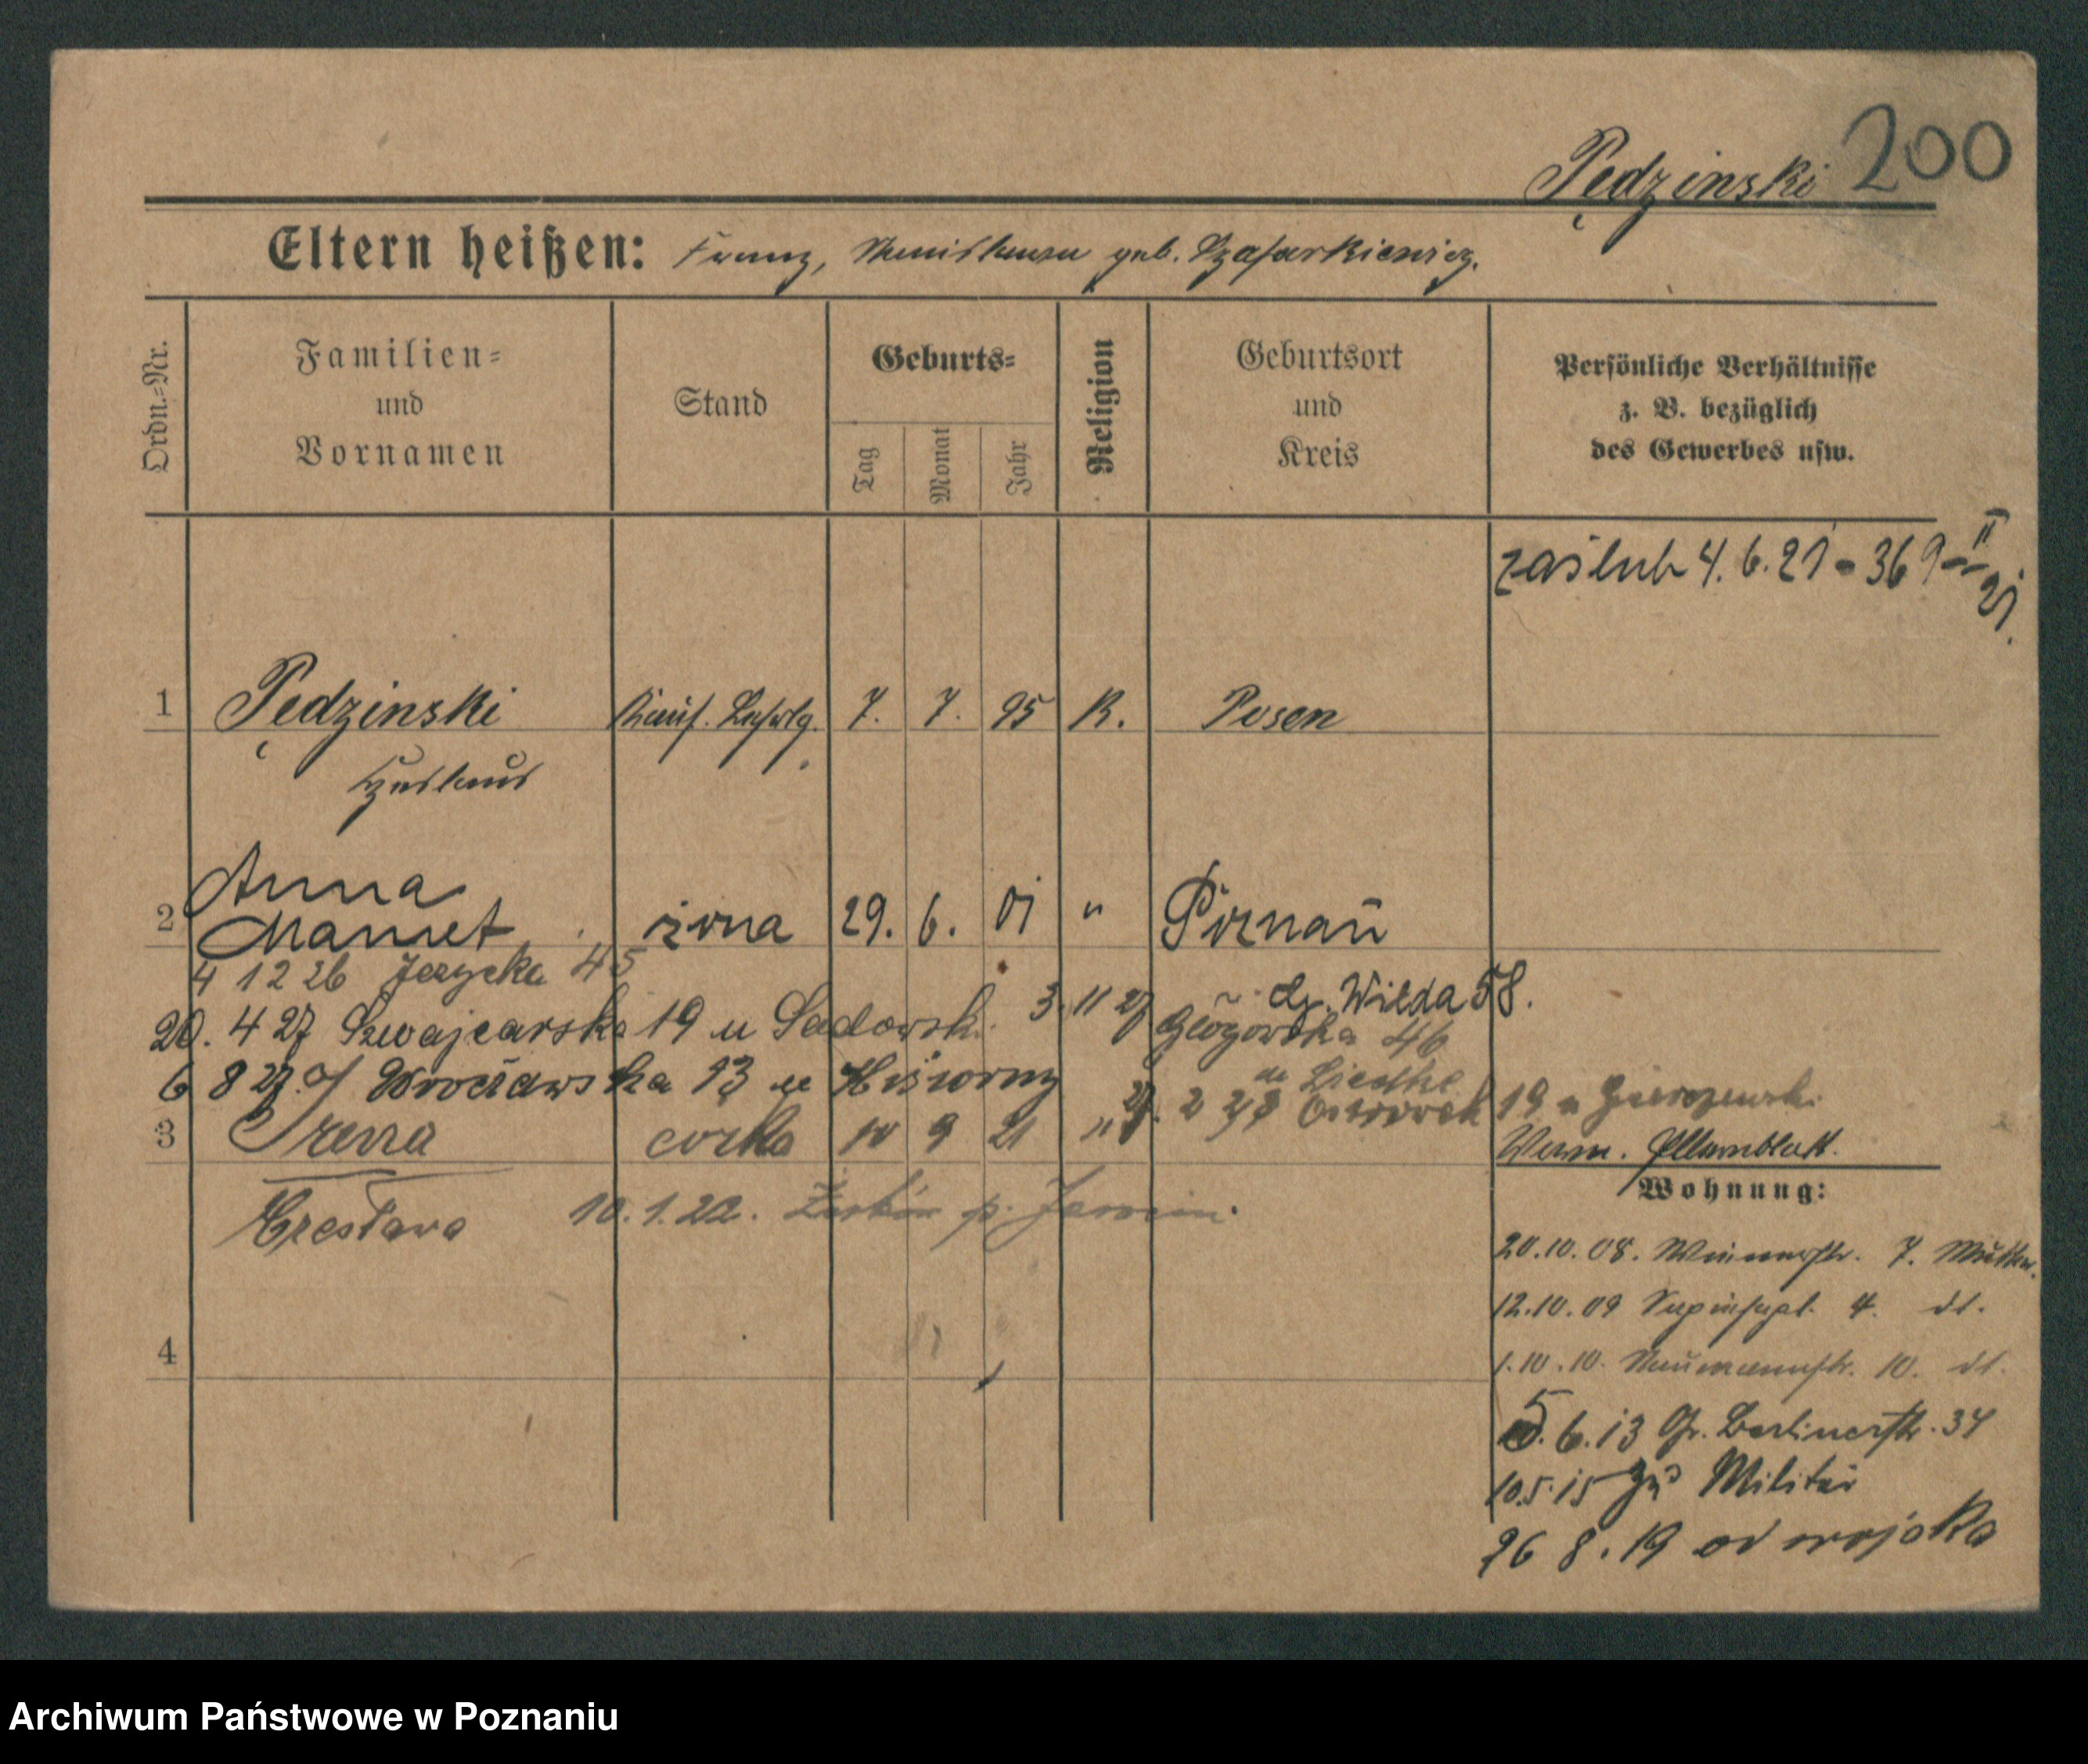 Pędzinski 200
Eltern heißen: Franz, Stanislawa geb. Szafarkiewicz.
Ordn.=Nr.
Familien= und Vornamen
Stand
Geburts=
Tag Monat Jahr
Religion
Geburtsort und Kreis
Persönliche Verhältnisse z. B. bezüglich des Gewerbes usw.
zaślub 4. 6. 21 - 369 II 21.
1 Pędzinski Kauf. Lehrlg. 7. 7. 95 K. Posen
2 Anna żona 29. 6. 01 " Poznań
4 12 26 Jeżycka 45
20. 4 27 Szwajcarska 19 u Sadowsk. 3. 11 27 Głogowska 46
Wilda 58.
6 8 27 Wrocławska 13 u
3 Irena córka 10 9 21 " 27. 2 Ostrówek 19 u
Verm. Elternblatt.
Wohnung:
Czesława 10. 1. 22.
20.10.08. 7. Mutter.
12.10.09 4. dt.
1.10.10. Naumannstr. 10. dt.
4
5. 6. 13 Gr. Berlinerstr. 34
10.5.15 Zu Militär
26 8. 19 od wojska
Archiwum Państwowe w Poznaniu